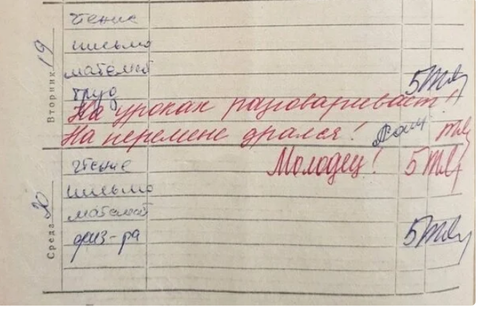 чтение
письмо
математ
труд 5
На уроках разговаривает!
На перемене дрался!
Вторник 19
чтение Молодец! 5
письмо
математ
физ-ра 5
Среда 20